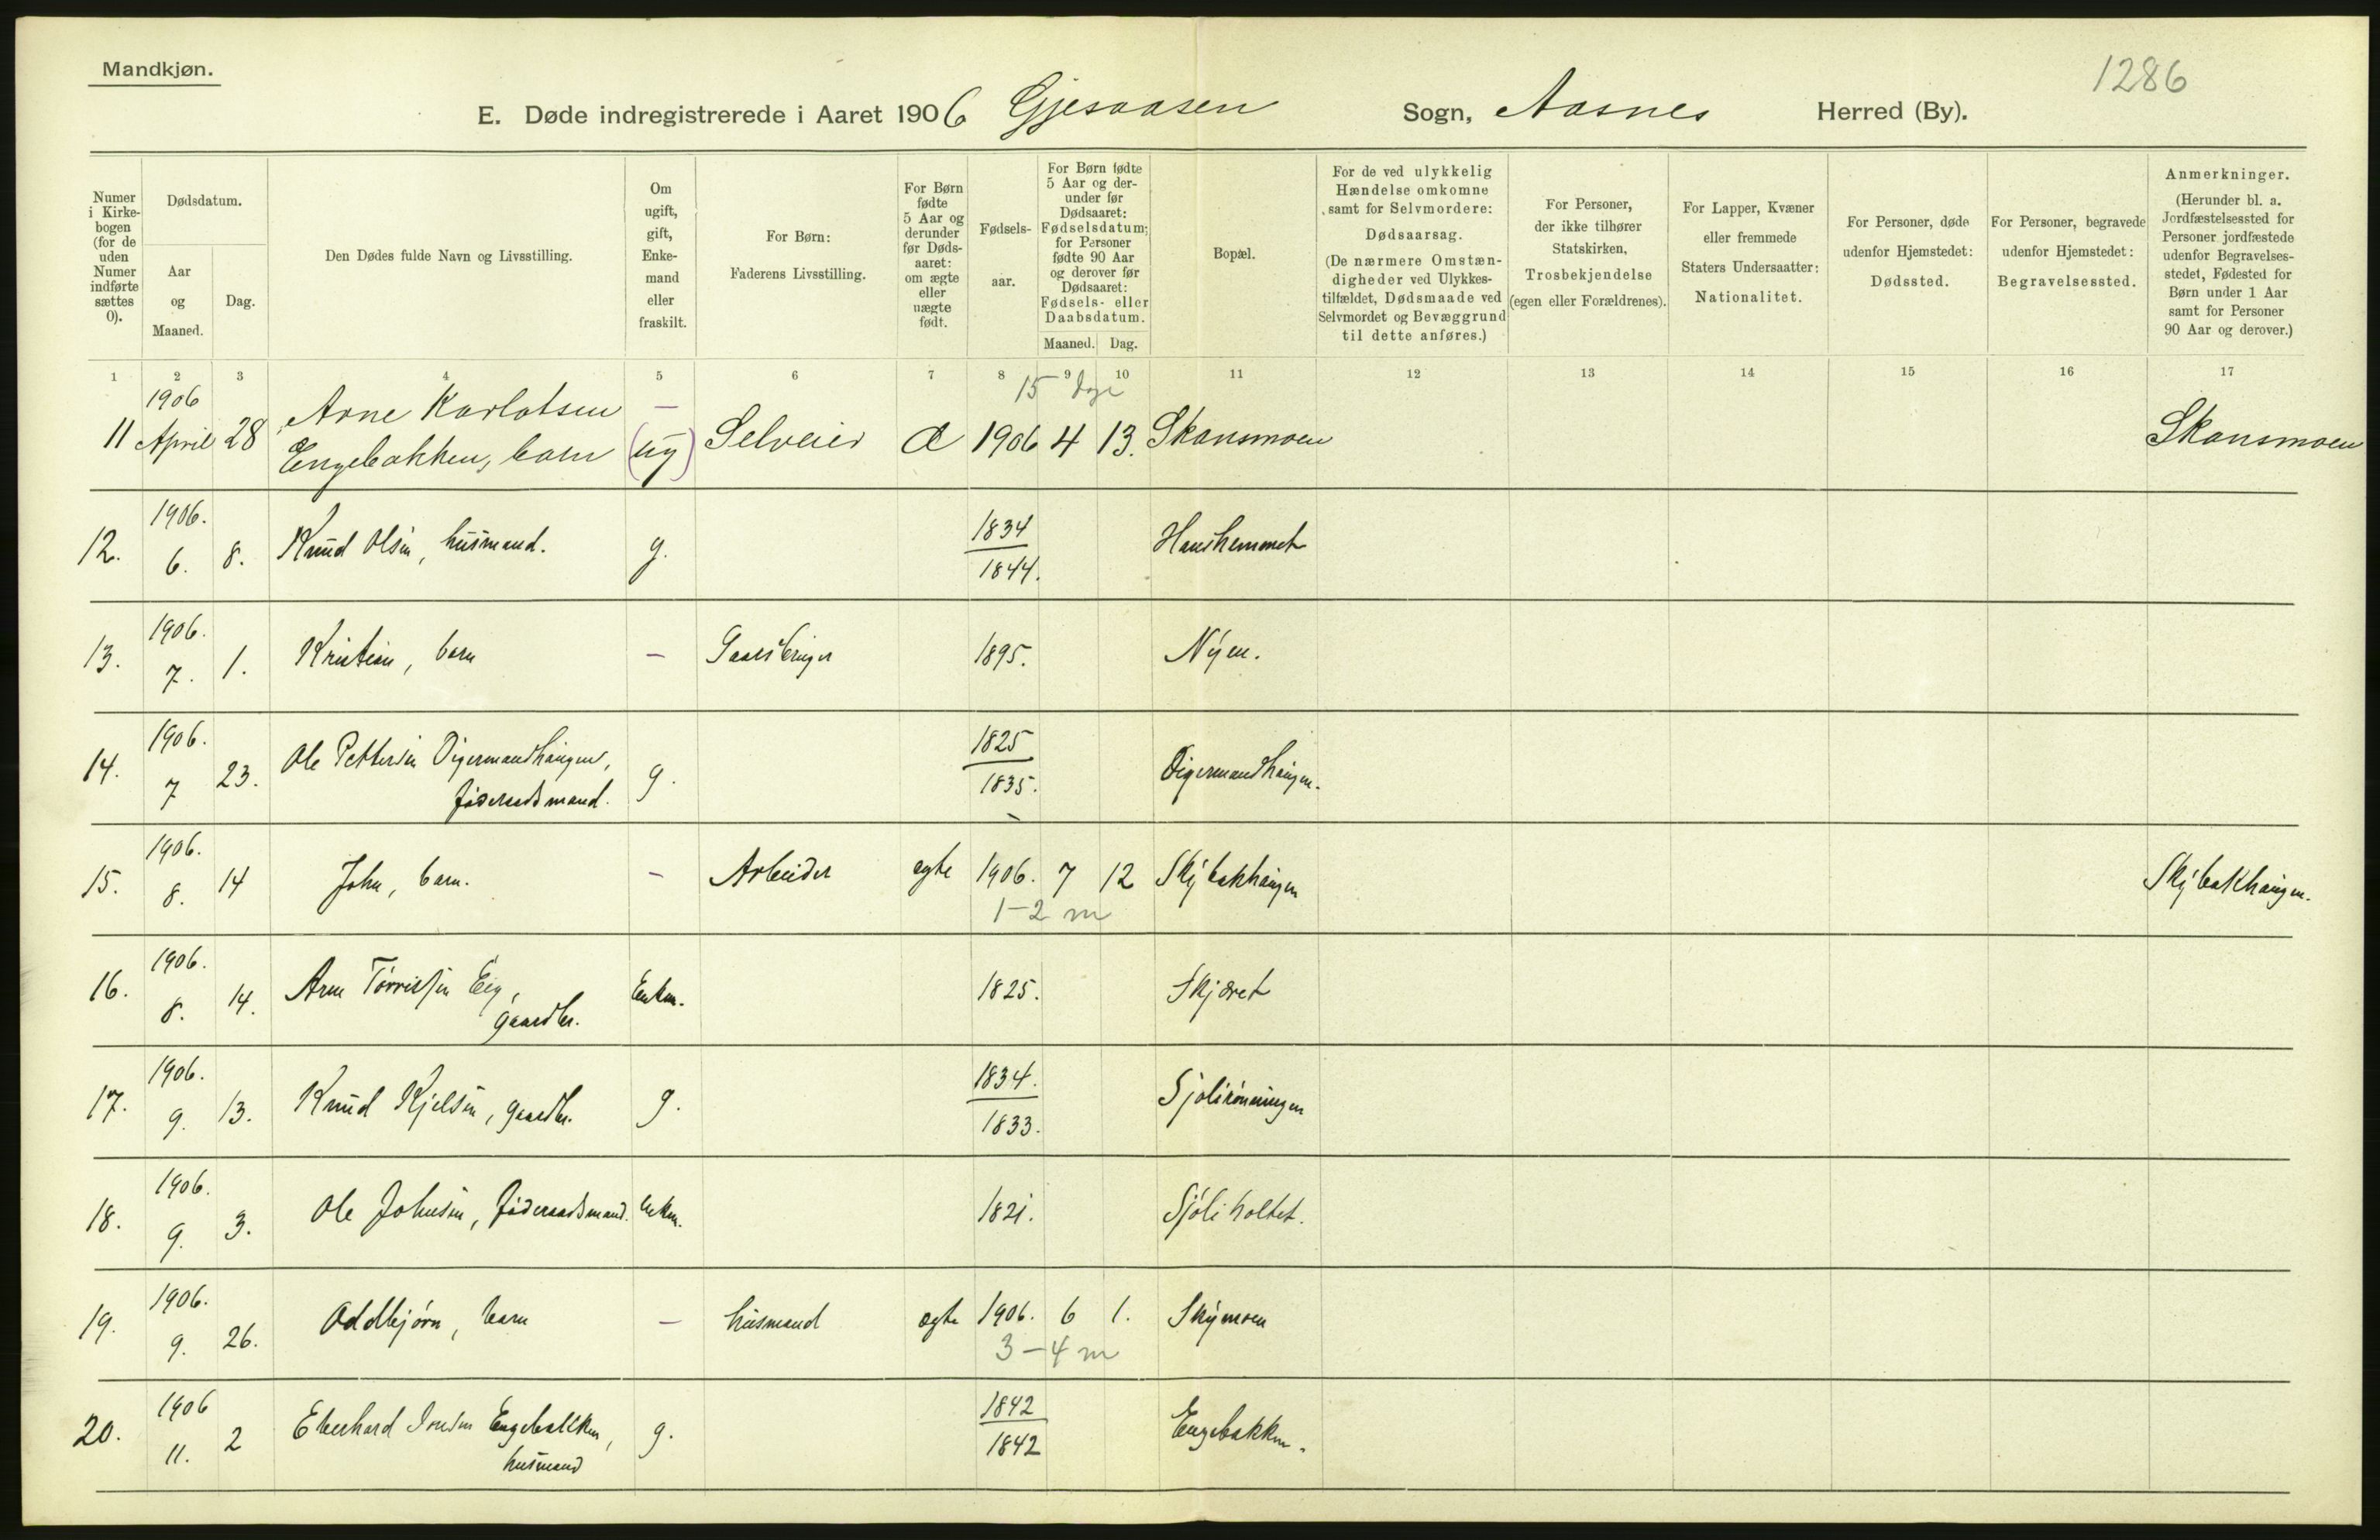 Mandkjøn.
1286
E. Døde indregistrerede i Aaret 1906 Gjesaasen Sogn, Aasnes Herred (By).
Numer i Kirkebogen (for de uden Numer indførte sættes 0).
Dødsdatum.
Aar og Maaned.
Dag.
Den Dødes fulde Navn og Livsstilling.
Om ugift, gift, Enkemand eller fraskilt.
For Børn: Faderens Livsstilling.
For Børn fødte 5 Aar og derunder før Dødsaaret: om ægte eller uægte født.
Fødselsaar.
For Børn fødte 5 Aar og derunder før Dødsaaret: Fødselsdatum; for Personer fødte 90 Aar og derover før Dødsaaret: Fødsels- eller Daabsdatum.
Maaned. Dag.
Bopæl.
For de ved ulykkelig Hændelse omkomne samt for Selvmordere: Dødsaarsag. (De nærmere Omstændigheder ved Ulykkestilfældet, Dødsmaade ved Selvmordet og Bevæggrund til dette anføres.)
For Personer, der ikke tilhører Statskirken, Trosbekjendelse (egen eller Forældrenes).
For Lapper, Kvæner eller fremmede Staters Undersaatter: Nationalitet.
For Personer, døde udenfor Hjemstedet: Dødssted.
For Personer, begravede udenfor Hjemstedet: Begravelsessted.
Anmerkninger. (Herunder bl. a. Jordfæstelsessted for Personer jordfæstede udenfor Begravelsesstedet, Fødested for Børn under 1 Aar samt for Personer 90 Aar og derover.)
1 2 3 4 5 6 7 8 9 10 11 12 13 14 15 16 17
1906 Arne Karlotsen — 15 dage
11 April 28 Engebakken, barn (ug) Selveier Æ 1906 4 13. Skansmoen Skansmoen
1906. 1834
12. 6. 8. Knud Olsen, husmand. g. 1844. Hanshemmet
1906.
13. 7. 1. Kristian, barn — Gaardbruger 1895. Nyen.
1906. 1825
14. 7 23. Ole Pettersen Digermandhaugen, g. 1835. Digermandhaugen.
føderaadsmand.
1906.
15. 8. 14 John, barn. — Arbeider ægte 1906. 7 12 Skybakhaugen Skybakhaugen.
1-2 m
1906.
16. 8. 14. Arne Torrissen Eig, Enkm. 1825. Skjæret
gaardbr.
1906. 1834.
17. 9. 13. Knud Kjelsen, gaardbr. g. 1833. Sjolirønningen
1906.
18. 9. 3. Ole Johnsen, føderaadsmand. enkm. 1821. Sjøliholtet.
1906.
19. 9. 26. Oddbjørn, barn — husmand ægte 1906. 6 1. Skymoen
3-4 m
1906 1842
20. 11. 2 Eberhard Engebakken, g. 1842 Engebakken.
husmand